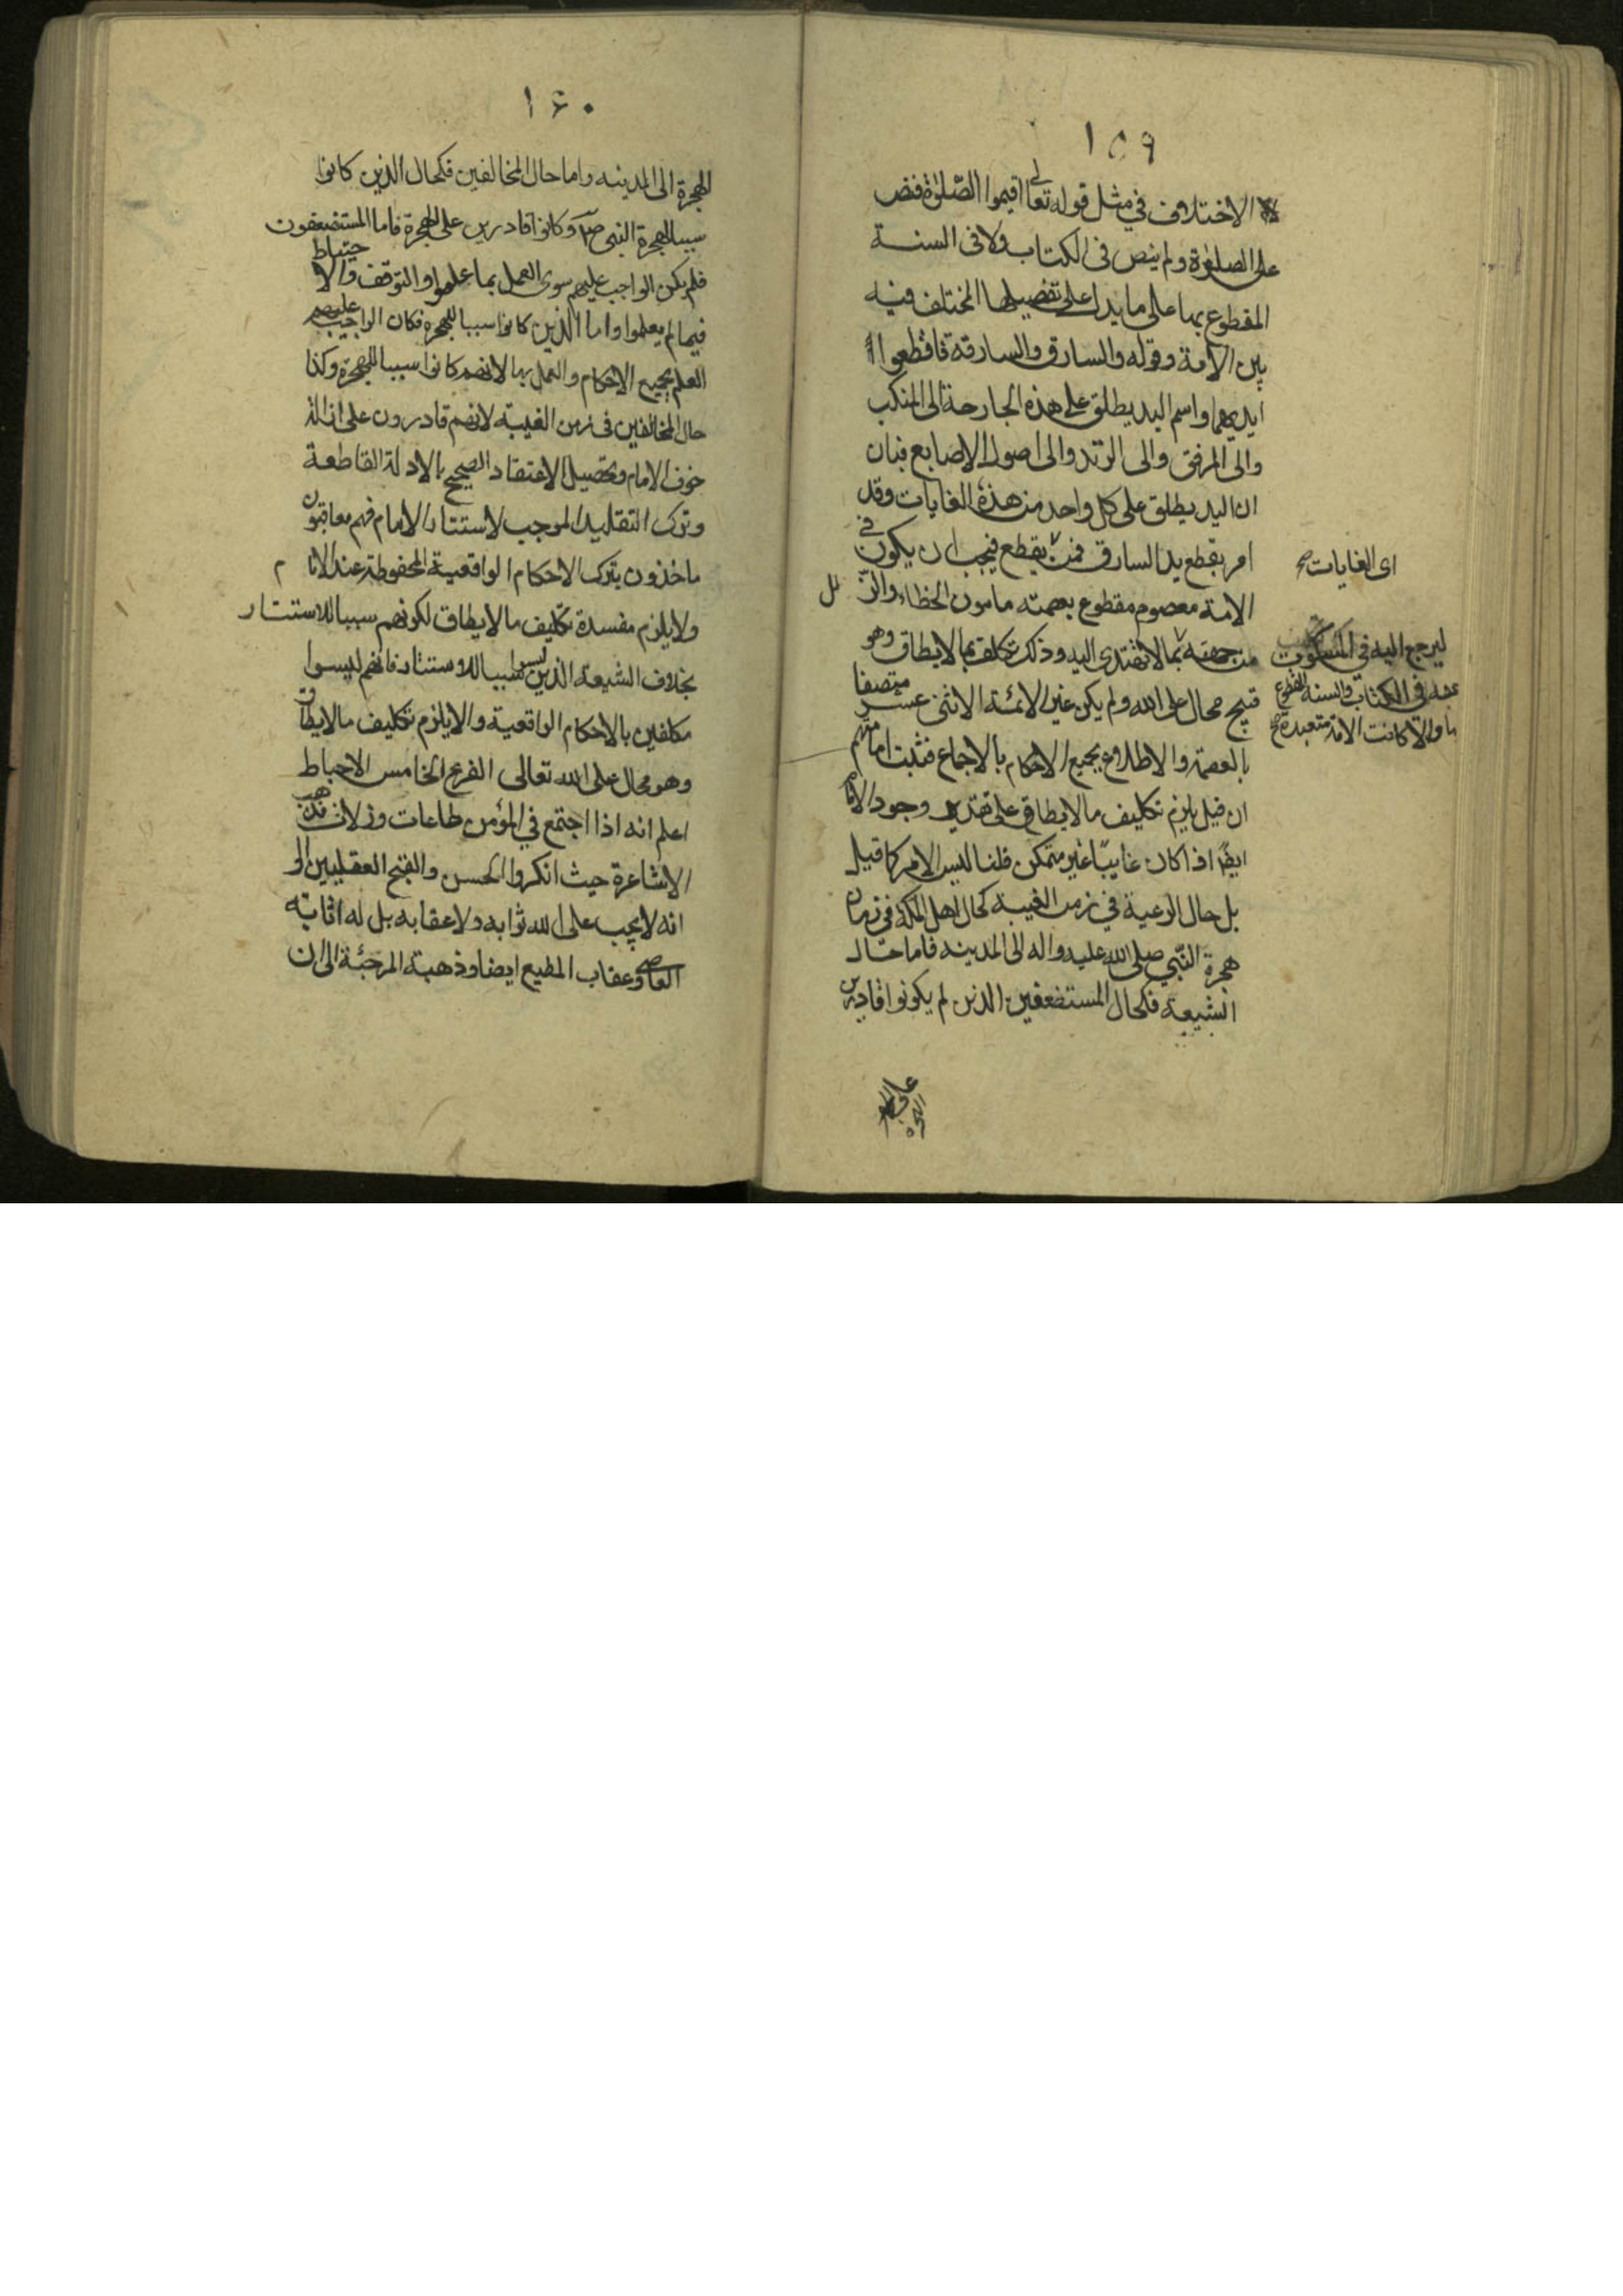 ١٥٩
الاختلاف في مثل قوله تعالى اقيموا الصلوة فنص
على الصلوة ولم ينص فى الكتاب ولا فى السنة
المقطوع بها على ما يدل على تفصيلها المختلف فيه
بين الامة وقوله والسارق والسارقة فاقطعوا
ايديهما واسم اليد يطلق على هذه الجارحة الى المنكب
والى المرفق والى الزند والى اصول الاصابع فبان
ان اليد يطلق على كل واحد من هذه الغايات وقد
امر بقطع يد السارق فمن يقطع فيجب ان يكون في
اى الغايات صح
الامة معصوم مقطوع بعصمته مامون الخطاء والزلل
ليرجع اليه فى المسكوت
عنه فى الكتاب والسنه المقطوع
بها والا كانت الامة متعبدة صح
من جهته بما لا تهتدى اليه وذلك تكلف بما لا يطاق وهو
قبيح محال على الله ولم يكن غير الائمة الاثنى عشر متصفا
بالعصمة والاطلاع بجميع الاحكام بالاجماع فثبت امامتهم
ان قيل يلزم تكليف ما لا يطاق على تقدير وجود الامام
ايضا اذا كان غايبا غير متمكن قلنا ليس الامر كما قيل
بل حال الرعية في زمن الغيبة كحال اهل المكة في زمان
هجرة النبي صلى الله عليه واله الى المدينه فاما حال
الشيعة فكحال المستضعفين الذين لم يكونوا قادرين
على
الهجرة
١٦٠
الهجرة الى المدينه واما حال المخالفين فكحال الذين كانوا
سببا لهجرة النبى ص وكانوا قادرين على الهجرة فاما المستضعفون
فلم يكن الواجب عليهم سوى العمل بما علموا والتوقف والاحتياط
فيما لم يعلموا واما الذين كانوا سببا للهجرة فكان الواجب عليهم
العلم بجميع الاحكام والعمل بها لانهم كانوا سببا للهجرة وكذا
حال المخالفين فى زمن الغيبة لانهم قادرون على ازالة
خوف الامام وتحصيل الاعتقاد الصحيح بالادلة القاطعة
وترك التقليد الموجب لاستتار الامام فهم معاقبون
ماخذون بترك الاحكام الواقعية المحفوظة عند الامام
ولا يلزم مفسدة تكليف ما لا يطاق لكونهم سببا للاستتار
بخلاف الشيعة الذين ليسوا سببا للاستتار فانهم ليسوا
مكلفين بالاحكام الواقعية والا يلزم تكليف ما لا يطاق
وهو محال على الله تعالى الفرع الخامس الاحباط
اعلم انه اذا اجتمع في المؤمن طاعات وزلات فذهب
الاشاعرة حيث انكروا الحسن والقبح العقليين الى
انه لا يجب على الله ثوابه ولا عقابه بل له اثابة
العاصى وعقاب المطيع ايضا وذهبة المرجئة الى ان